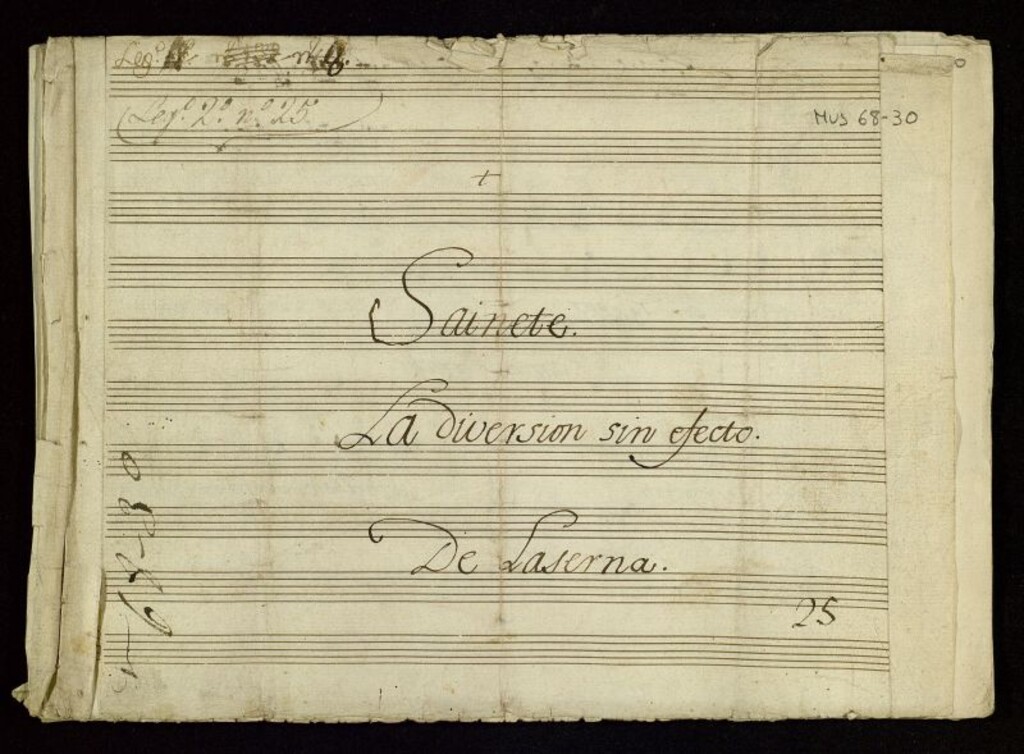 Leg.º nº 8.
Leg.º 2.º n.º 25.
MUS 68-30
+
Sainete.
La diversion sin efecto.
De Laserna.
25